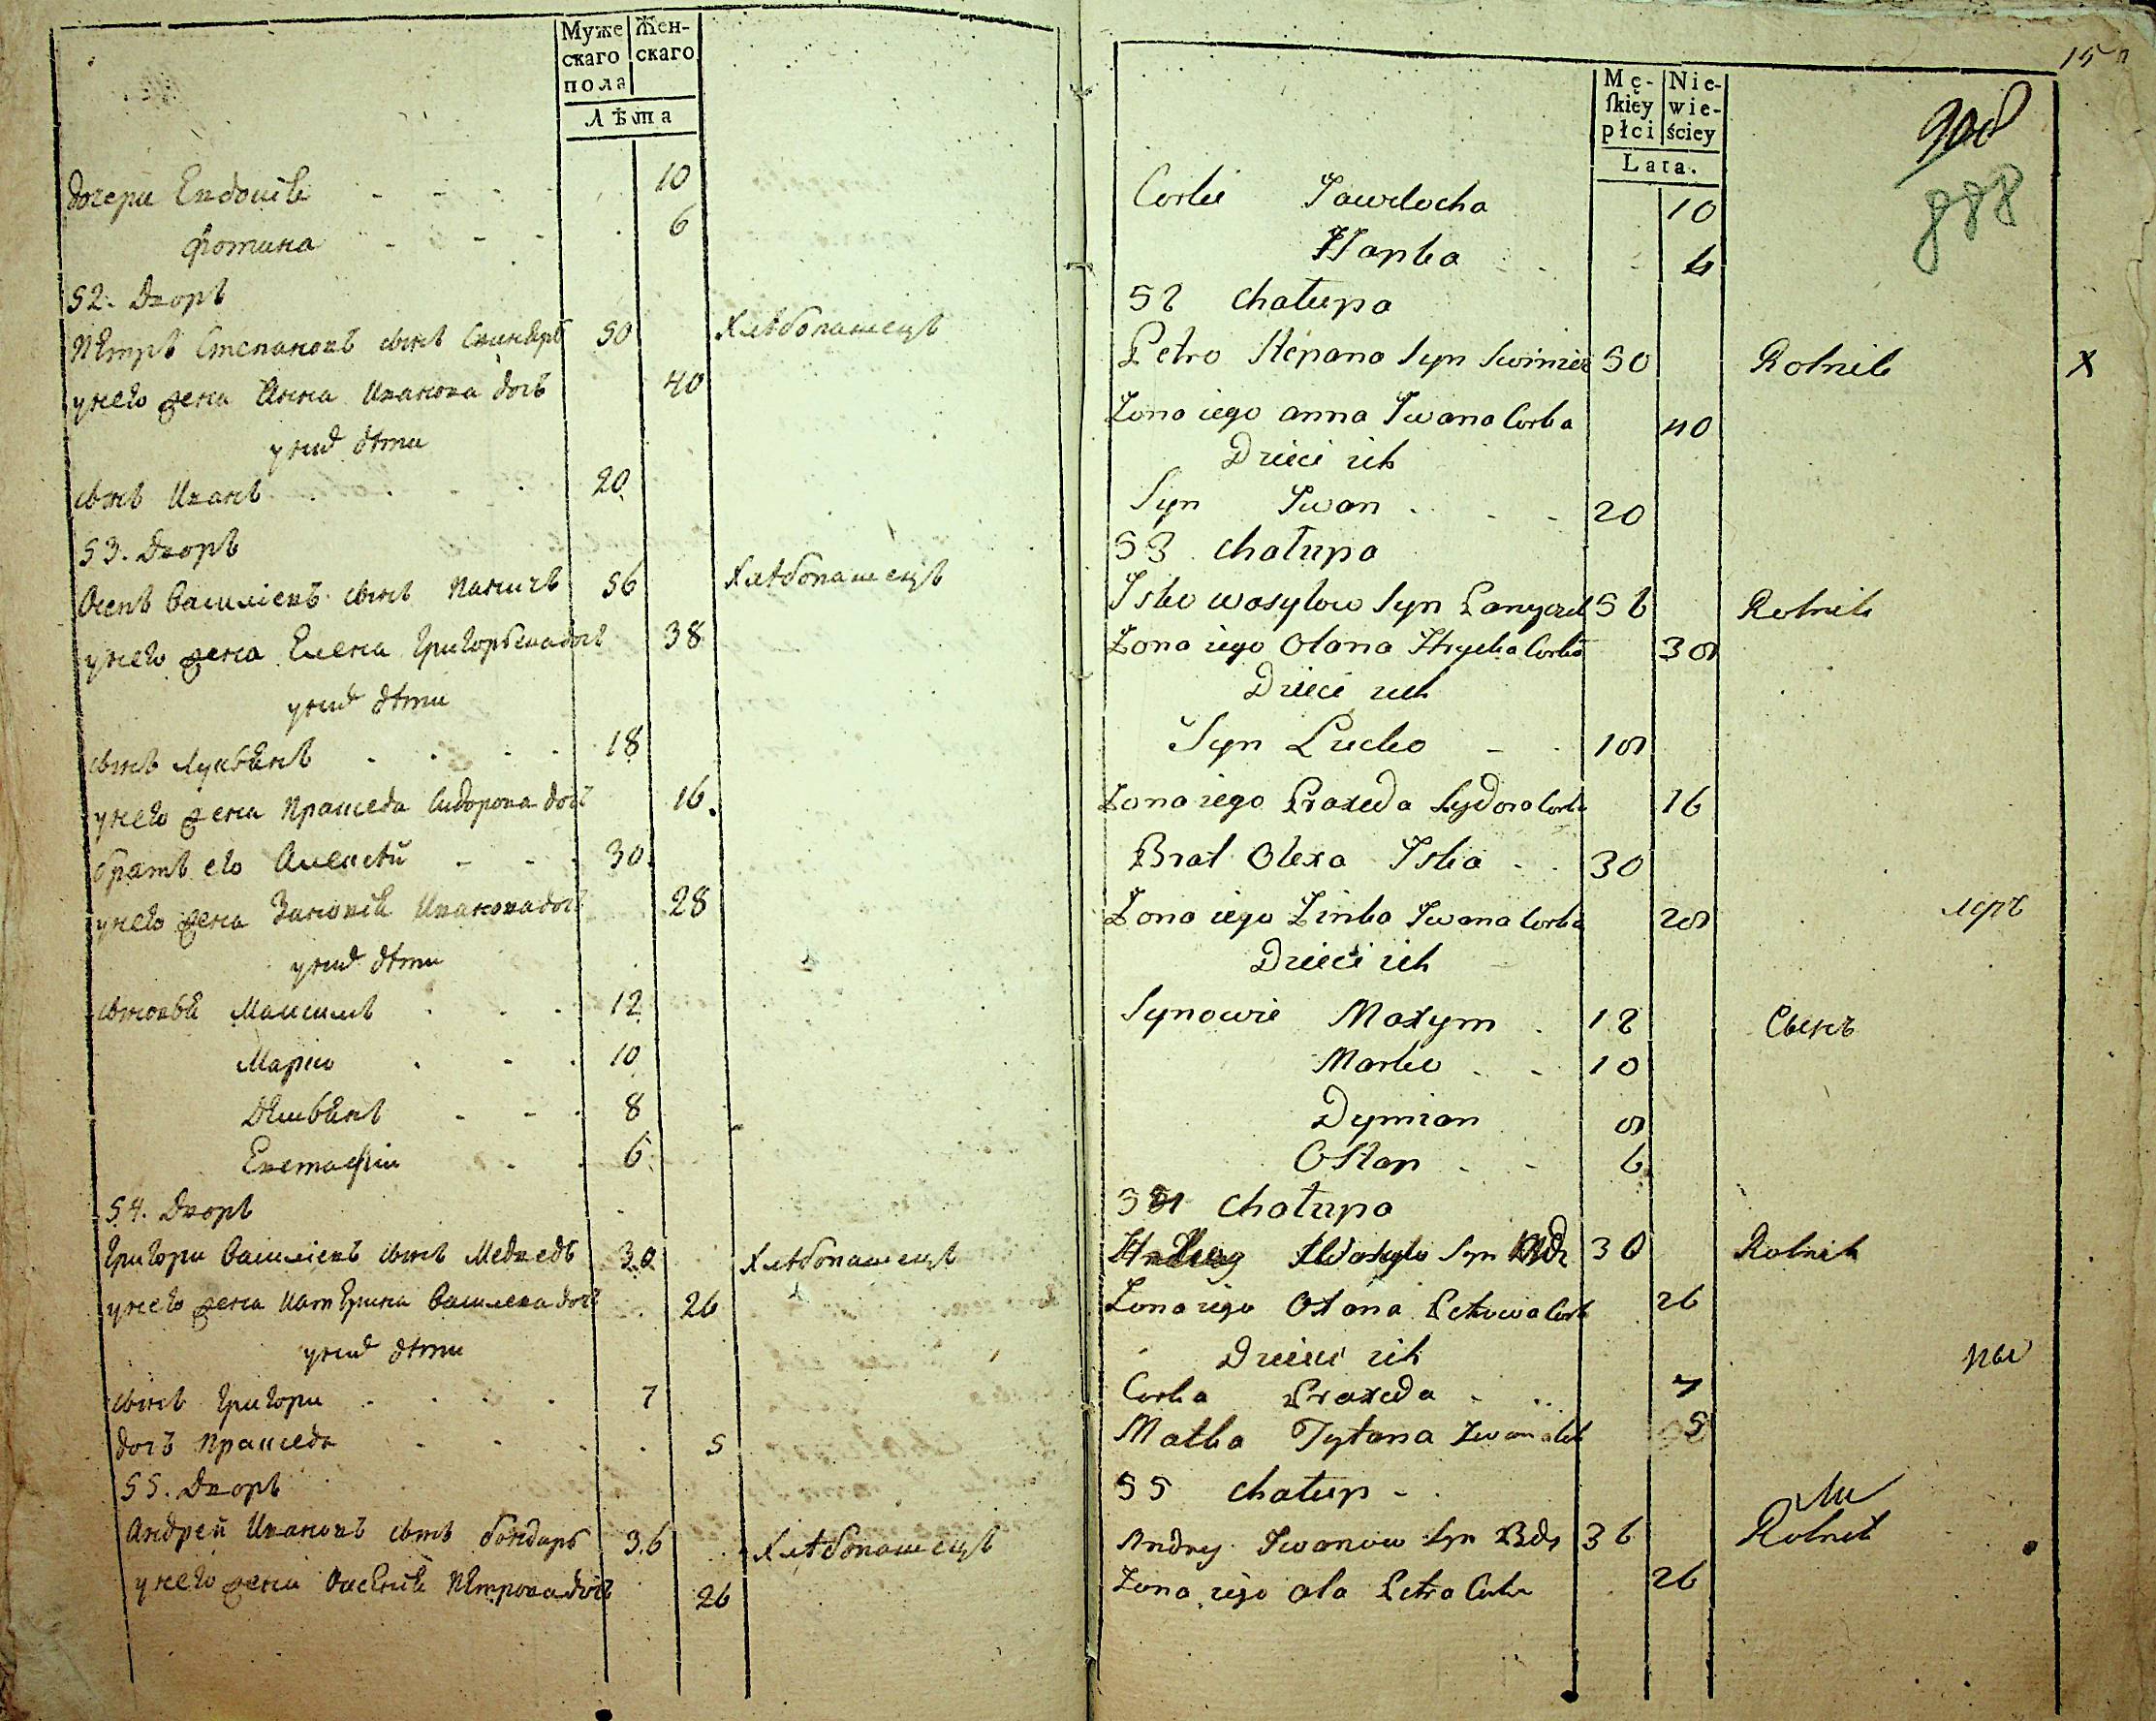 Муже Жен-
скаго скаго
пола
Лѣта
дочери Евдокія - - - - 10
Фотина - - - - 6
52. Дворъ
Петръ Степановъ сынъ 50 Хлѣбопашецъ
у него жена Анна Иванова дочь 40
у них дѣти
сынъ Иванъ 20
53. Дворъ
Осипъ Василіевъ сынъ Паничъ 56 Хлѣбопашецъ
у него жена Елена Григорьева дочь 38
у них дѣти
сынъ Лукьянъ 18
у него жена Праѯеда Сидорова дочь 16
братъ его Алексѣй - - 30
у него жена Зиновія Иванова дочь 28
у них дѣти
сыновья Максимъ 12
Марко 10
Демьянъ - - 8
Евстафій 6
54. Дворъ
Григори Василіевъ сынъ Медведь 30 Хлѣбопашецъ
у него жена Катерина Василева дочь 26
у них дѣти
сынъ Григори 7
дочь Пракседа 5
55. Дворъ
Андрей Ивановъ сынъ бондарь 36 Хлѣбопашецъ
у него жена Оксенія Петрова дочь 26
15
Mę- Nie-
ſkiey wie-
płci ściey
Lata.
908
888
Corki Jawdocha 10
Hapka 6
52 chałupa
Petro Stepana Syn 50 Rolnik x
Zona iego anna Iwana Corka 40
Dzieci ich
Syn Iwan - - - 20
53 chałupa
Isko wasylow Syn 56 Rolnik
Zona iego Olana Hryćka Corka 38
Dzieci ich
Syn Lucko - 18
Zona iego Praxeda Sydora Corka 16
Brat Olexa Iska 30
Zona iego Zinka Iwana Corka 28
Dzieci ich
Synowie Maxym 12
Marko - - 10
Dymian 8
Ostap - - 6
54 chałupa
Wasylo Syn 30 Rolnik
Zona iego Oxana Petrowa Corka 26
Dzieci ich
Corka Praxeda 7
Matka Tytana
55 chałup -
Andrey Iwanow Syn 36 Rolnik
Zona iego Petra Corka 26